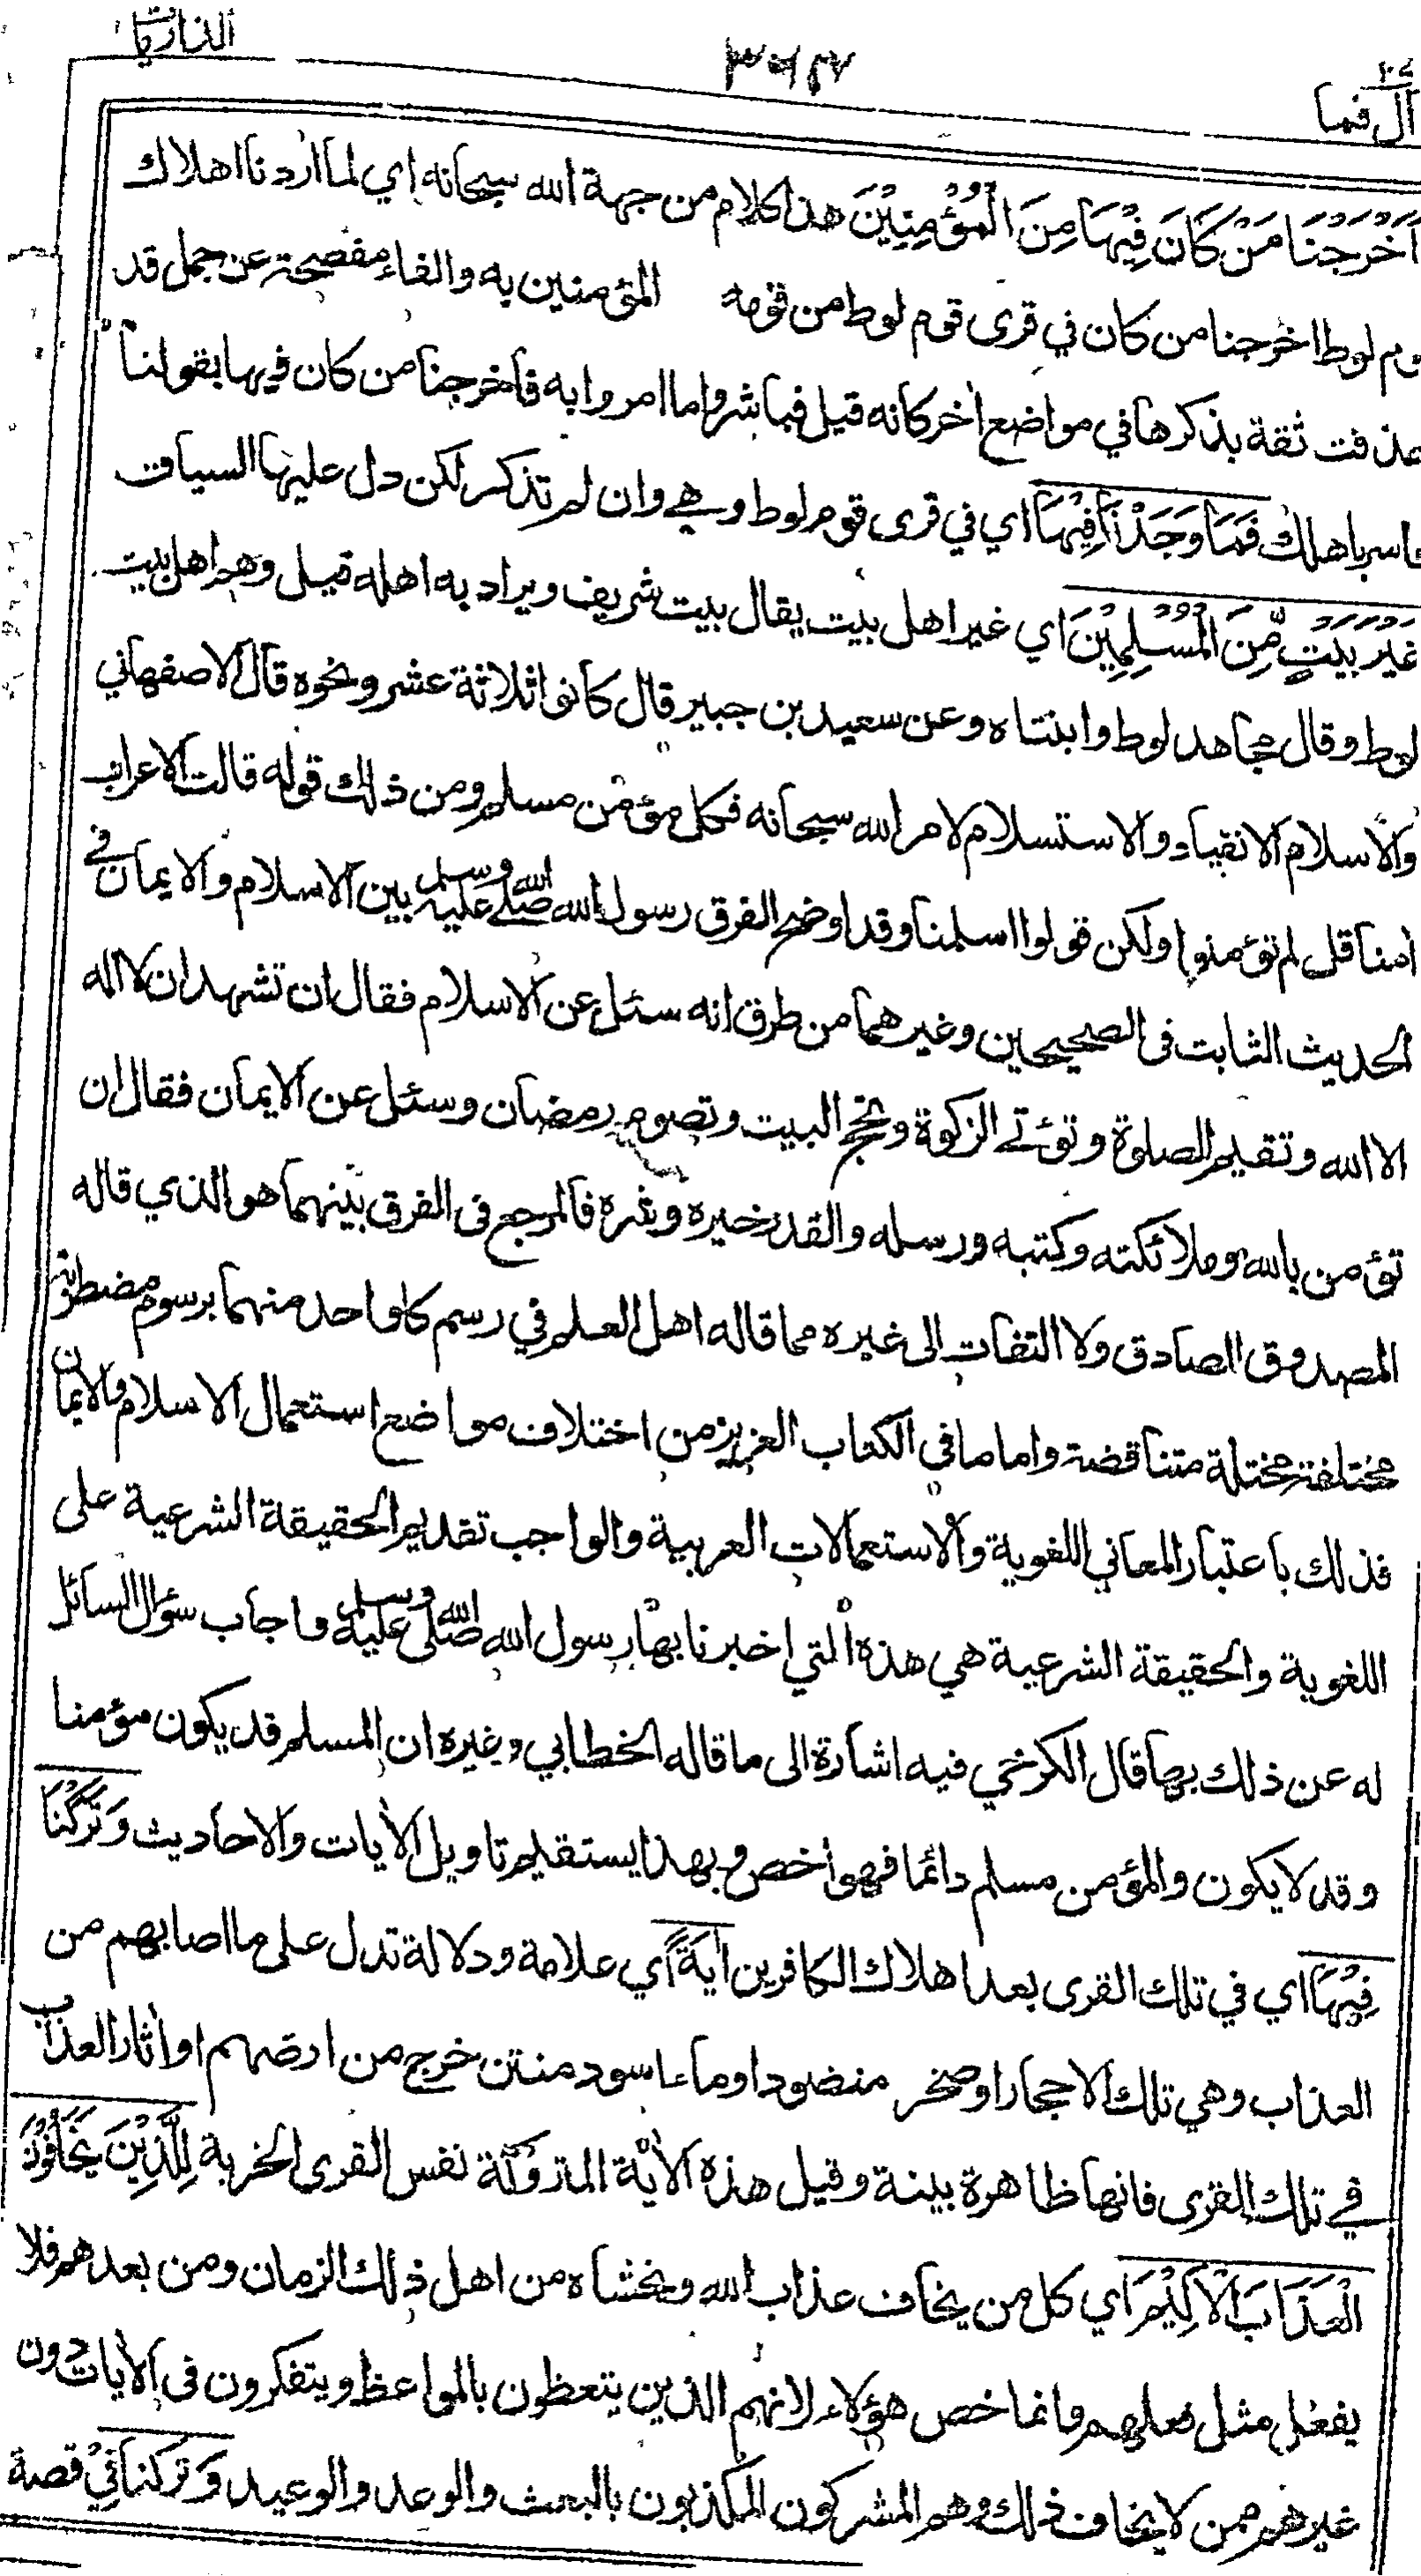 الذاريات
قال فما
اَخْرَجْنَا مَنْ كَانَ فِيْهَا مِنَ الْمُؤْمِنِيْنَ هذا كلام من جهة الله سبحانه اي لما اردنا اهلاك
قوم لوط اخرجنا من كان في قرى قوم لوط من قومه المؤمنين به والفاء مفصحة عن جمل قد
حذفت ثقة بذكرها في مواضع اخر كانه قيل فباشروا ما امروا به فاخرجنا من كان فيها بقولنا
فاسر باهلك فَمَا وَجَدْنَا فِيْهَا اي في قرى قوم لوط وهي وان لم تذكر لكن دل عليها السياق
غَيْرَ بَيْتٍ مِّنَ الْمُسْلِمِيْنَ اي غير اهل بيت يقال بيت شريف ويراد به اهله قيل وهم اهل بيت
لوط وقال مجاهد لوط وابنتاه وعن سعيد بن جبير قال كانوا ثلاثة عشر ونحوه قال الاصفهاني
والاسلام الانقياد والاستسلام لامر الله سبحانه فكل مؤمن مسلم ومن ذلك قوله قالت الاعراب
امنا قل لم تؤمنوا ولكن قولوا اسلمنا وقد اوضح الفرق رسول الله صلى الله عليه وسلم بين الاسلام والايمان في
الحديث الثابت في الصحيحين وغيرهما من طرق انه سئل عن الاسلام فقال ان تشهد ان لا اله
الا الله وتقيم الصلوة وتؤتي الزكوة وتحج البيت وتصوم رمضان وسئل عن الايمان فقال ان
تؤمن بالله وملائكته وكتبه ورسله والقدر خيره وشره فالمرجع في الفرق بينهما هو الذي قاله
المصدوق الصادق ولا التفات الى غيره مما قاله اهل العلم في رسم كل واحد منهما برسوم مضطربة
مختلفة مختلة متناقضة واما ما في الكتاب العزيز من اختلاف مواضع استعمال الاسلام والايمان
فذلك باعتبار المعاني اللغوية والاستعمالات العربية والواجب تقديم الحقيقة الشرعية على
اللغوية والحقيقة الشرعية هي هذه التي اخبرنا بها رسول الله صلى الله عليه وسلم واجاب سؤال السائل
له عن ذلك بها قال الكرخي فيه اشارة الى ما قاله الخطابي وغيره ان المسلم قد يكون مؤمنا
وقد لا يكون والمؤمن مسلم دائما فهو اخص وبهذا يستقيم تاويل الأيات والاحاديث وَتَرَكْنَا
فِيْهَا اي في تلك القرى بعد اهلاك الكافرين اٰيَةً اي علامة ودلالة تدل على ما اصابهم من
العذاب وهي تلك الاحجار او صخر منضود او ماء اسود منتن خرج من ارضهم او أثار العذاب
في تلك القرى فانها ظاهرة بينة وقيل هذه الأية المتروكة نفس القرى الخربة لِلَّذِيْنَ يَخَافُوْنَ
الْعَذَابَ الْاَلِيْمَ اي كل من يخاف عذاب الله ويخشاه من اهل ذلك الزمان ومن بعدهم فلا
يفعل مثل فعلهم وانما خص هؤلاء لانهم الذين يتعظون بالمواعظ ويتفكرون في الأيات دون
غيرهم ممن لا يخاف ذلك وهم المشركون المكذبون بالبعث والوعد والوعيد وَ تركنا فِيْ قصة